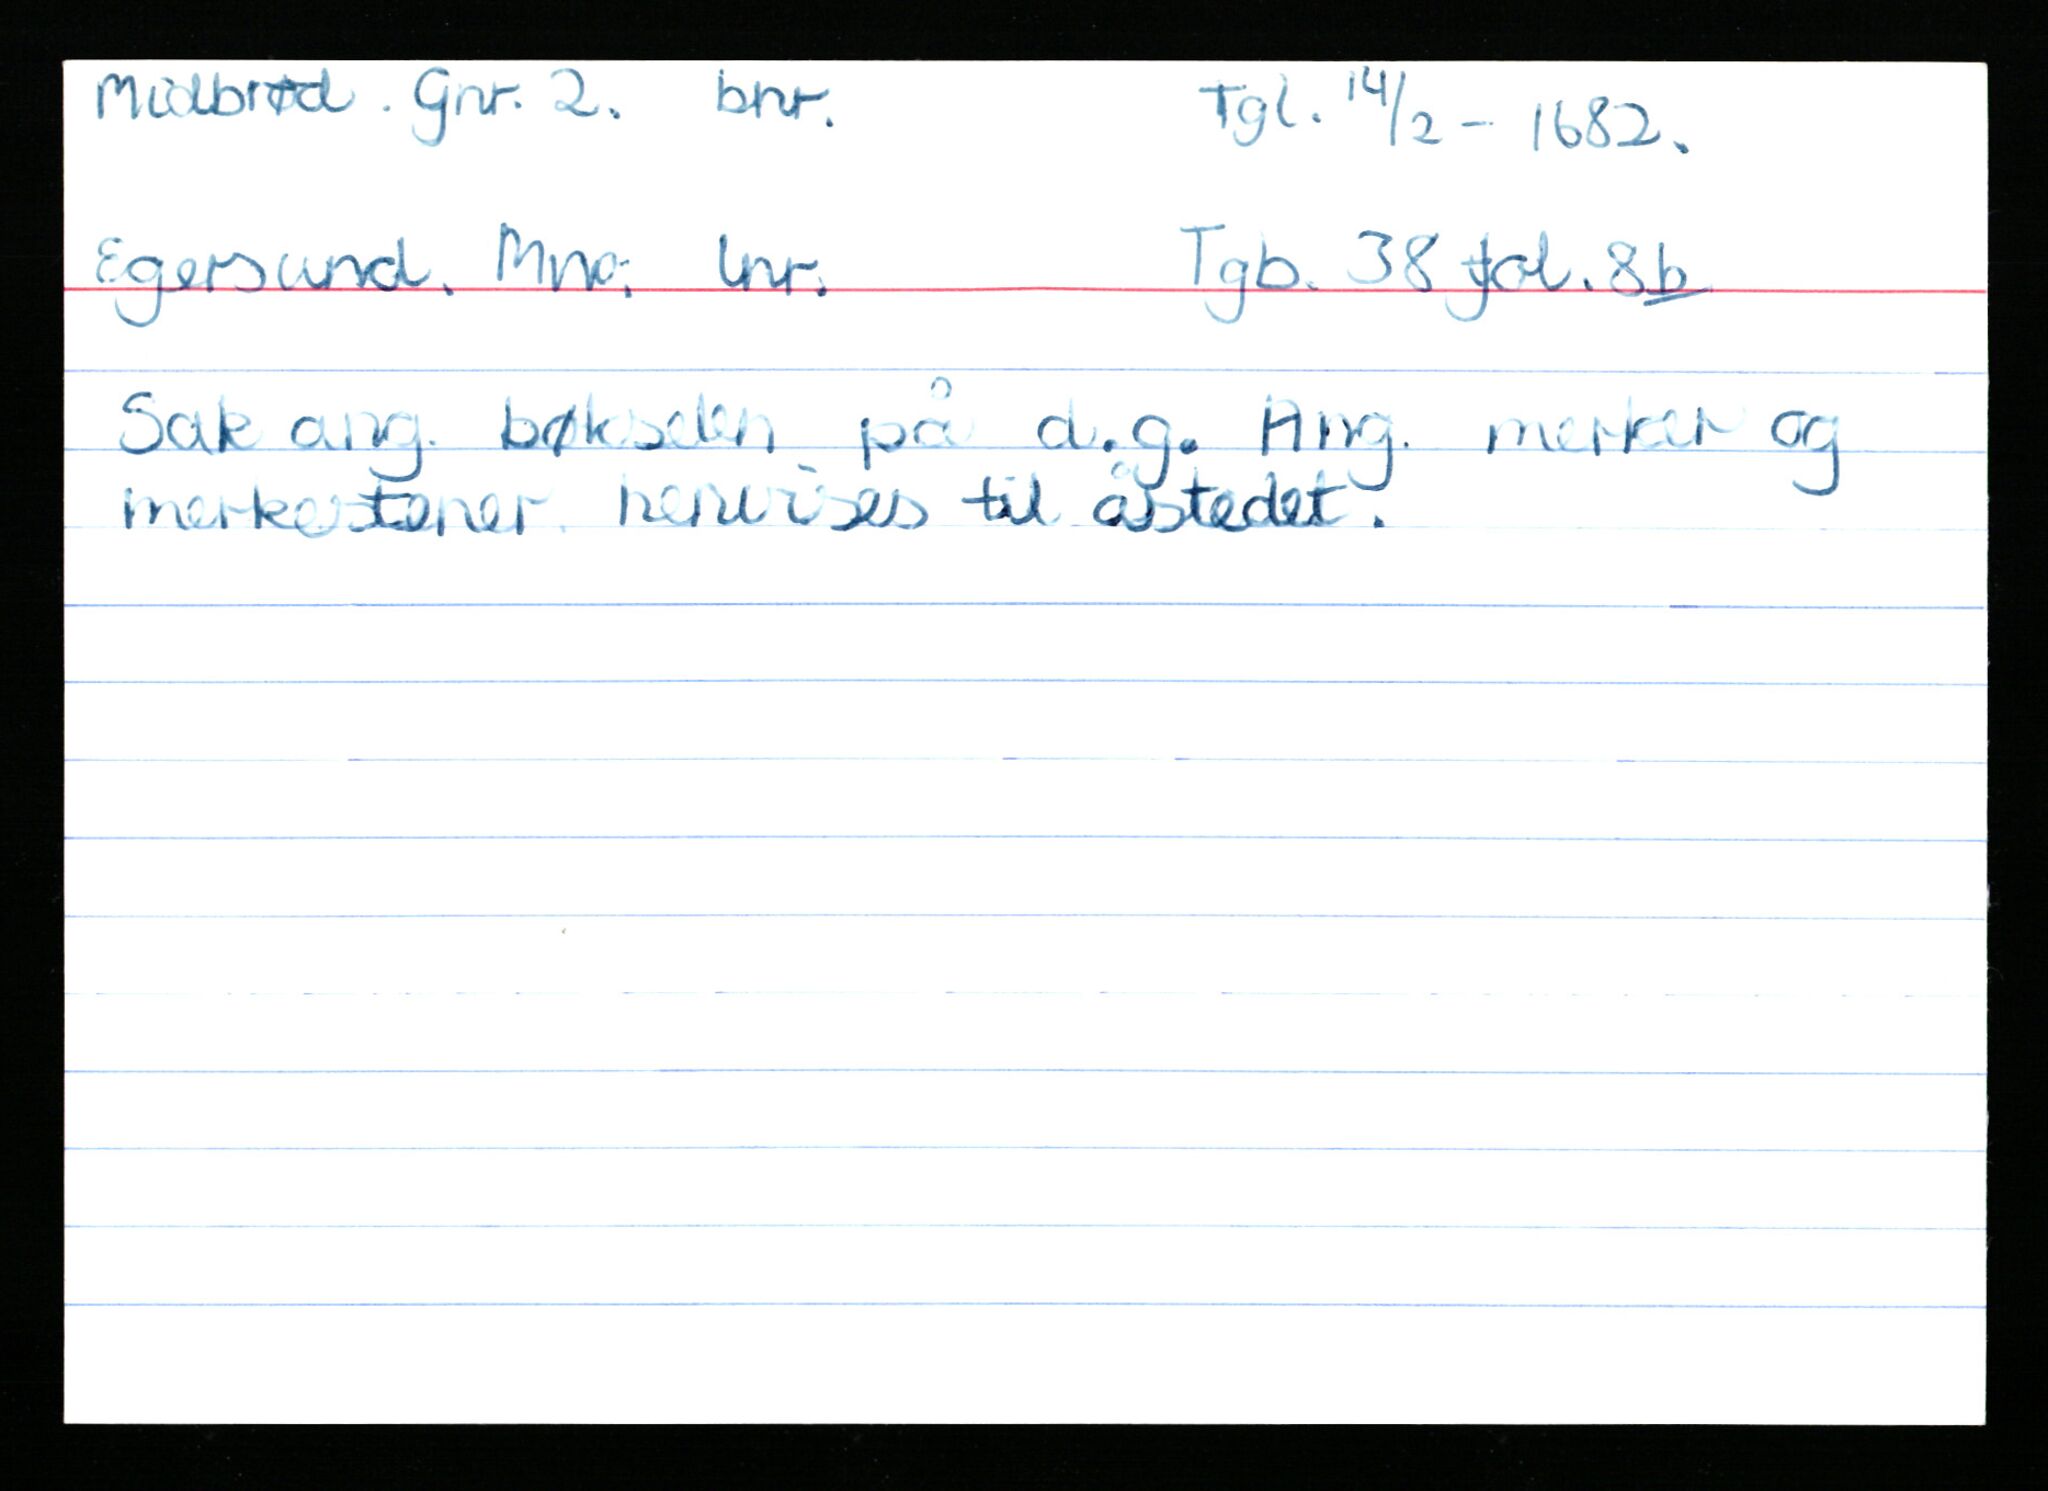 Midbrød. Gnr. 2. bnr. Tgl. 14/2 - 1682.
Egersund. Mnr. lnr. Tgb. 38 fol. 8b
Sak ang. bøkselen på d.g. Ang. merker og
merkestener henvises til åstedet.